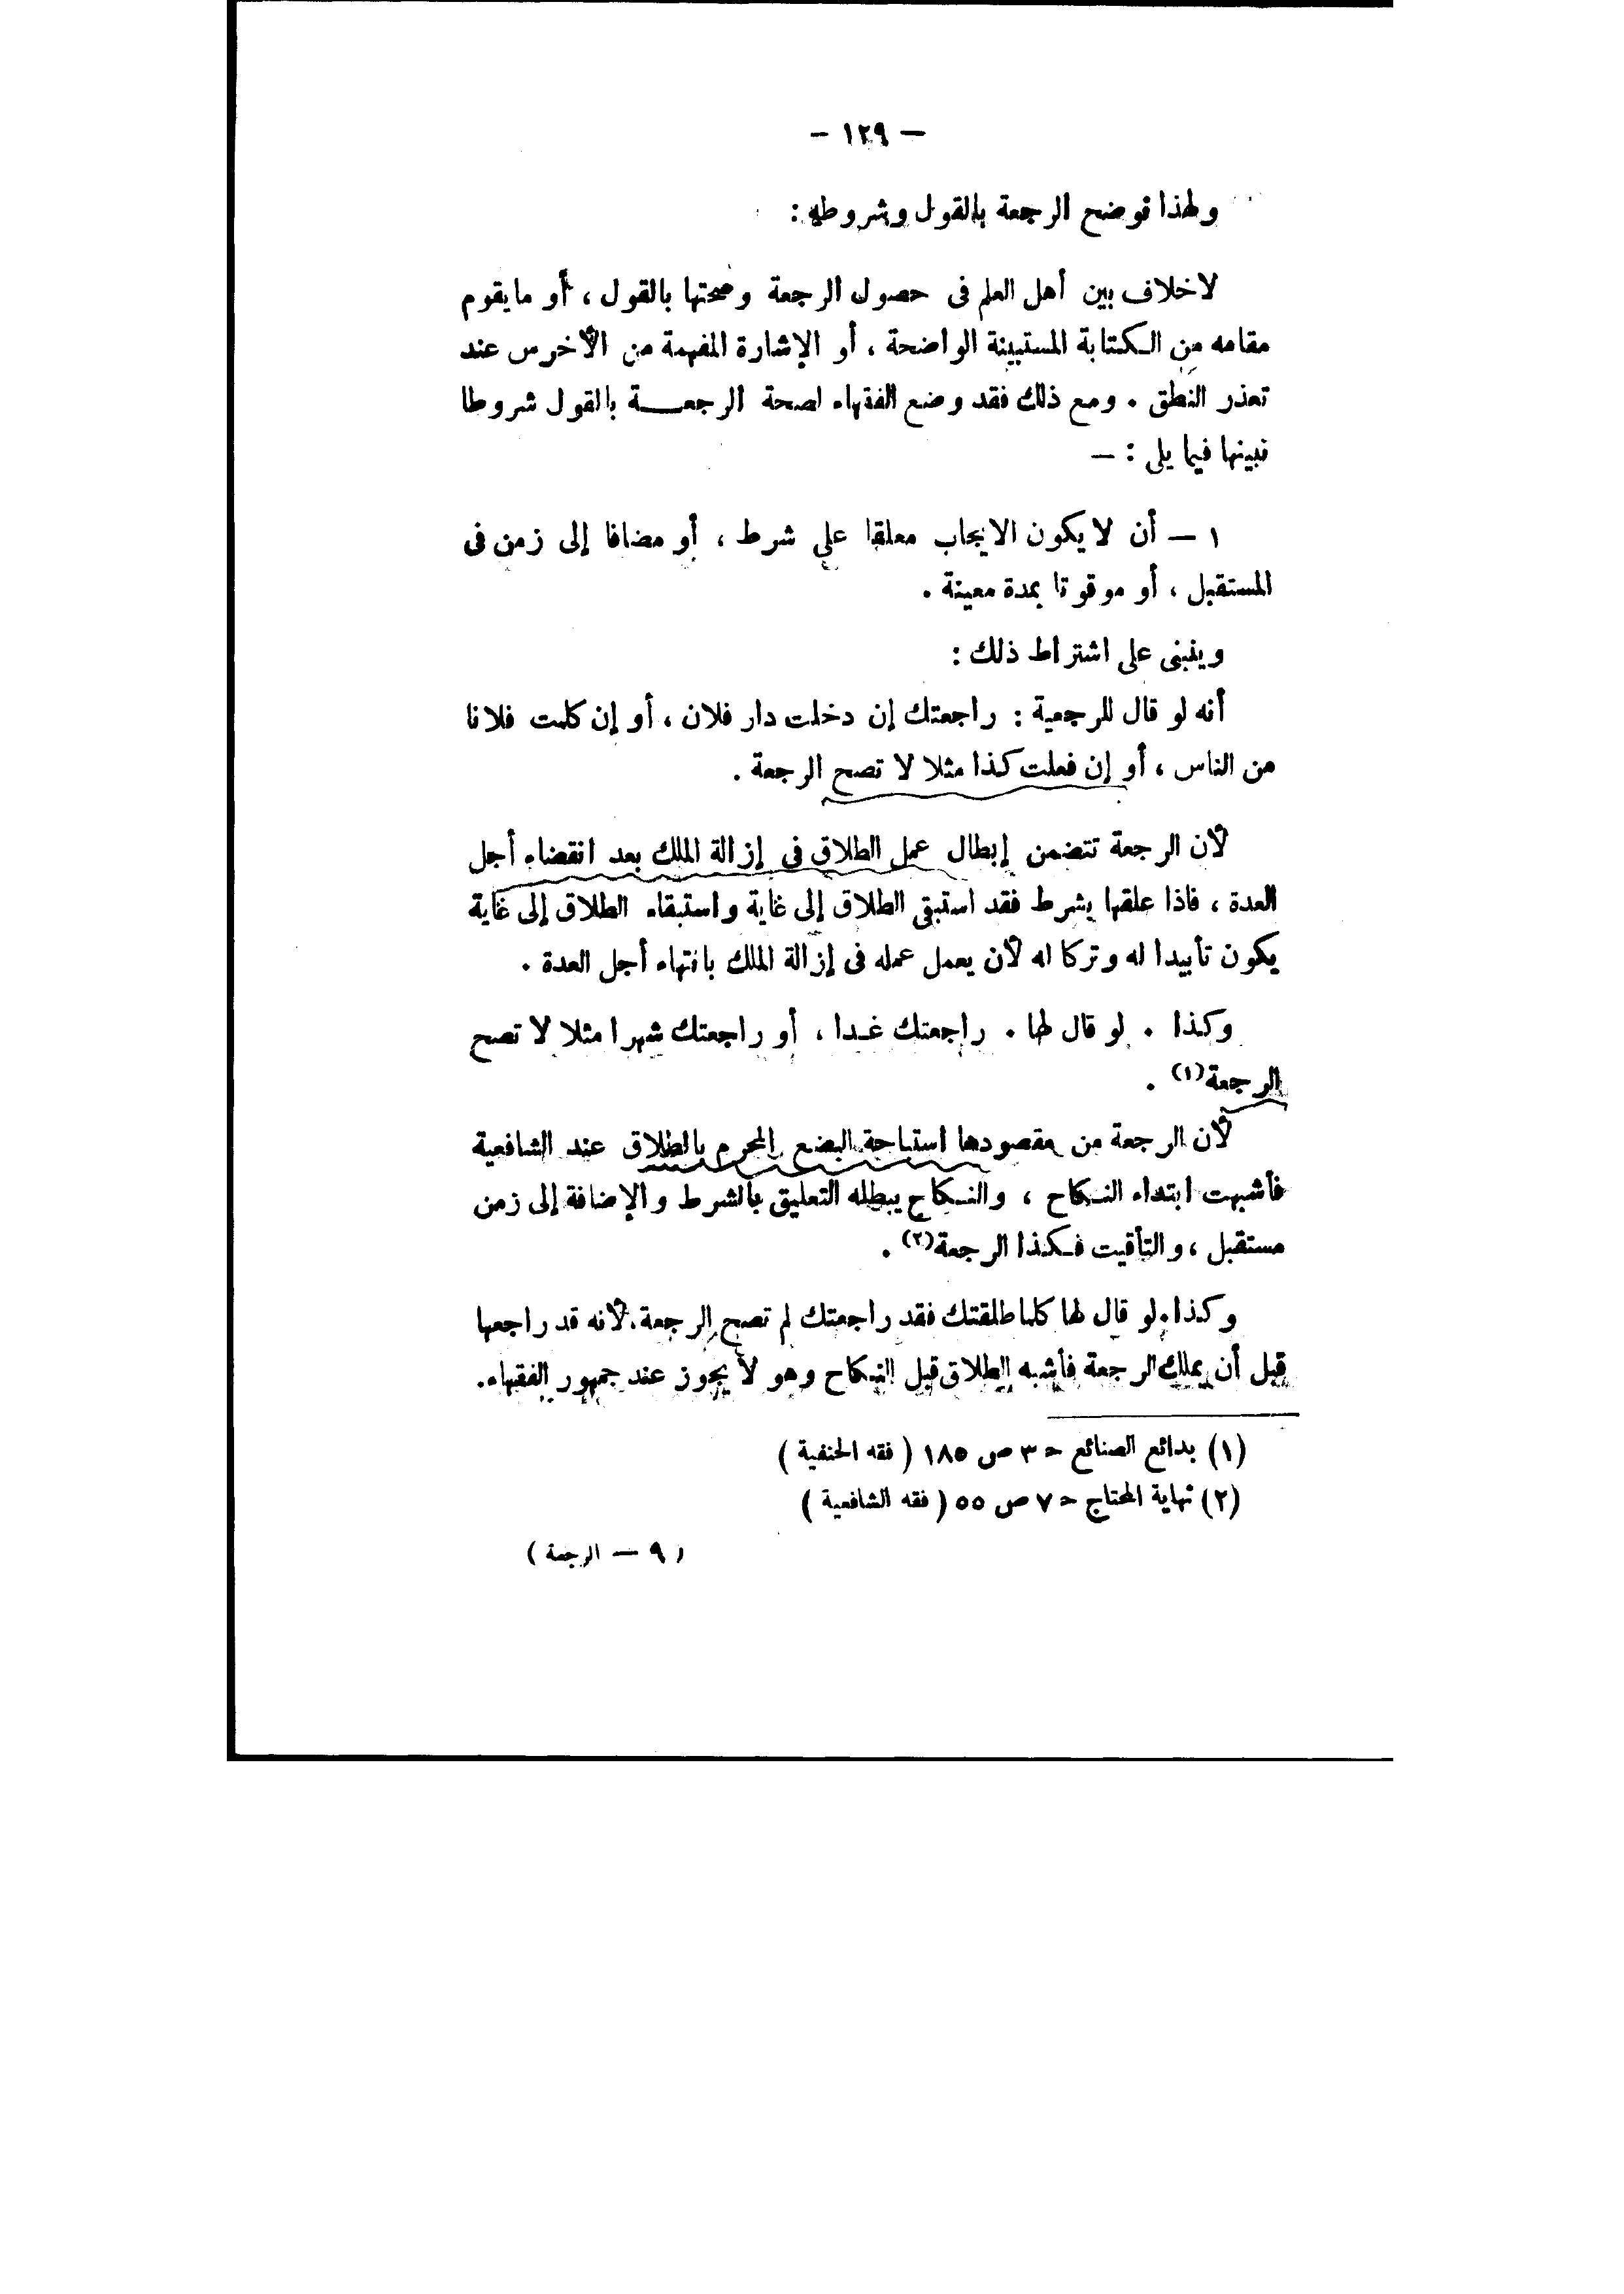 — ١٢٩ —
ولهذا نوضح الرجعة بالقول وشروطه :
لاخلاف بين أهل العلم فى حصول الرجعة وصحتها بالقول ، أو مايقوم
مقامه من الكتابة المستبينة الواضحة ، أو الإشارة المفهمة من الأخرس عند
تعذر النطق . ومع ذلك فقد وضع الفقهاء لصحة الرجعة بالقول شروطا
نبينها فيما يلى : —
١ — أن لا يكون الايجاب معلقا على شرط ، أو مضافا إلى زمن فى
المستقبل ، أو موقوتا بمدة معينة .
وينبنى على اشتراط ذلك :
أنه لو قال للرجعية : راجعتك إن دخلت دار فلان ، أو إن كلمت فلانا
من الناس ، أو إن فعلت كذا مثلا لا تصح الرجعة .
لأن الرجعة تتضمن إبطال عمل الطلاق فى إزالة الملك بعد انقضاء أجل
العدة ، فاذا علقها بشرط فقد استبقى الطلاق إلى غاية واستبقاء الطلاق إلى غاية
يكون تأبيدا له وتركا له لأن يعمل عمله فى إزالة الملك بانتهاء أجل العدة .
وكذا . لو قال لها . راجعتك غدا ، أو راجعتك شهرا مثلا لا تصح
الرجعة(١) .
لأن الرجعة من مقصودها استباحة البضع المحرم بالطلاق عند الشافعية
فأشبهت ابتداء النكاح ، والنكاح يبطله التعليق بالشرط والإضافة إلى زمن
مستقبل ، والتأقيت فكذا الرجعة(٢) .
وكذا . لو قال لها كلما طلقتك فقد راجعتك لم تصح الرجعة . لأنه قد راجعها
قبل أن يملك الرجعة فأشبه الطلاق قبل النكاح وهو لا يجوز عند جمهور الفقهاء .
(١) بدائع الصنائع ح ٣ ص ١٨٥ ( فقه الحنفية )
(٢) نهاية المحتاج ح ٧ ص ٥٥ ( فقه الشافعية )
( ٩ — الرجعة )